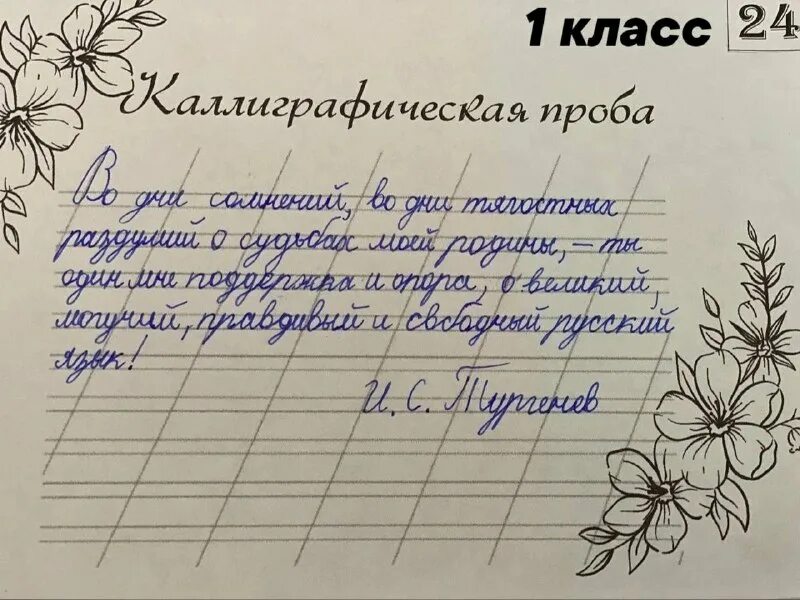 1 класс 24
Каллиграфическая проба
Во дни сомнений, во дни тягостных
раздумий о судьбах моей родины, – ты
один мне поддержка и опора, о великий,
могучий, правдивый и свободный русский
язык!
И. С. Тургенев